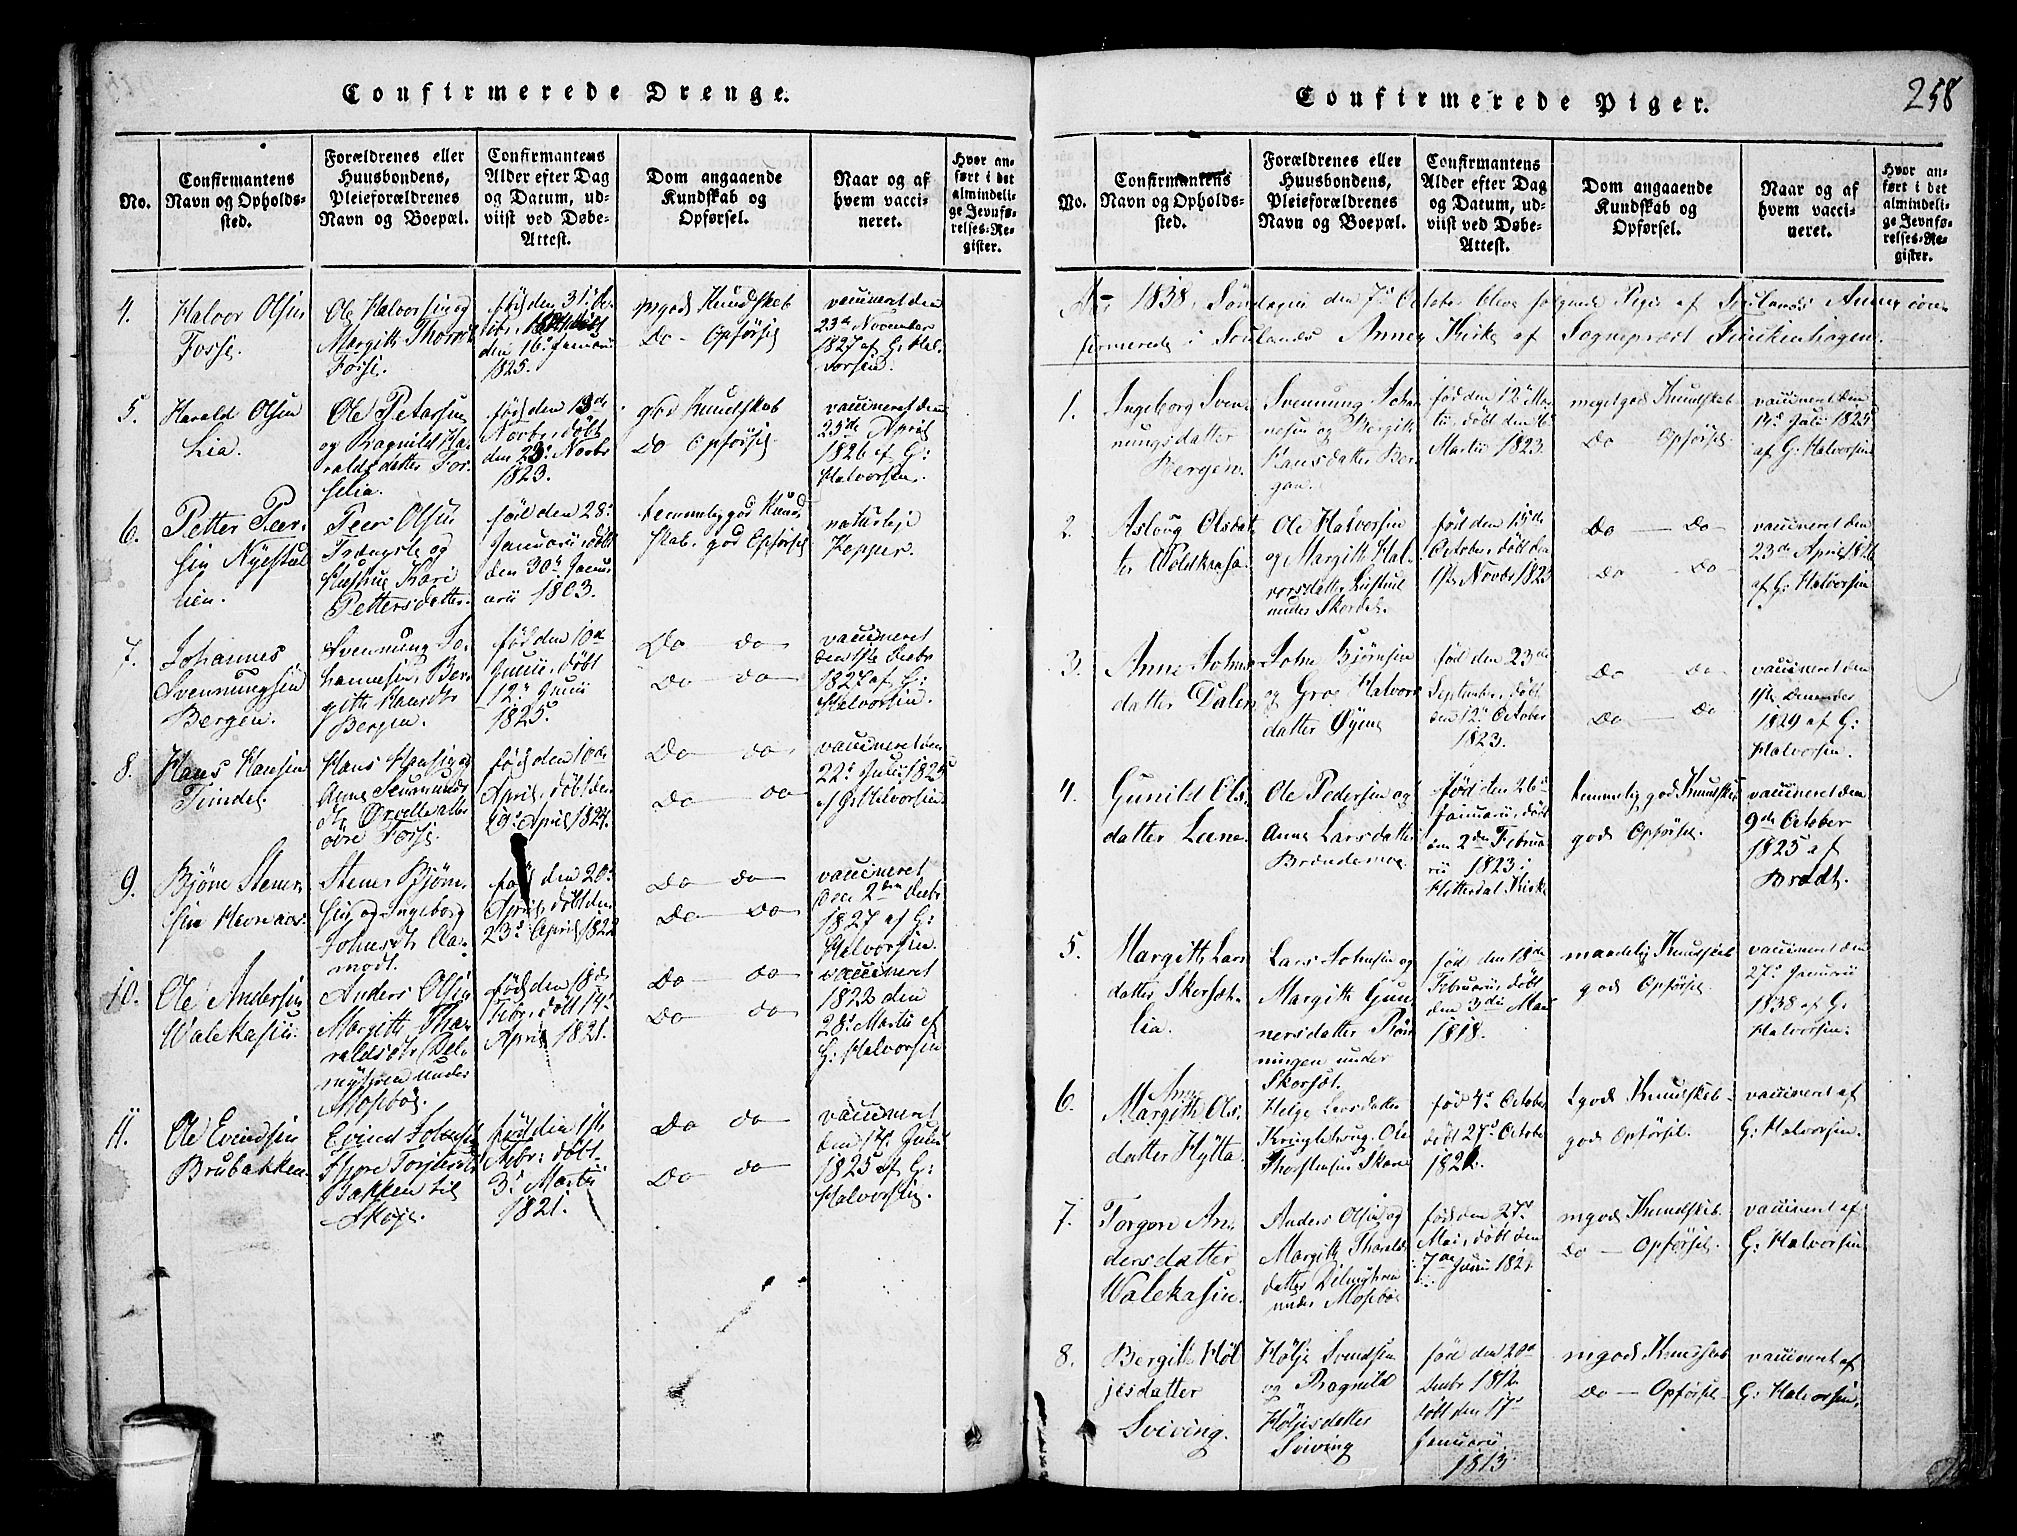 258
Confirmerede Drenge.
No.
Confirmantens
Navn og Opholds-
sted.
Forældrenes eller
Huusbondens,
Pleieforældrenes
Navn og Boepæl.
Confirmantens
Alder efter Dag
og Datum, ud-
viist ved Døbe-
Attest.
Dom angaaende
Kundskab og
Opførsel.
Naar og af
hvem vacci-
neret.
Hvor an-
ført i det
almindeli-
ge Jevnfø-
relses-Re-
gister.
4.
Halvor Olsen
Fosse.
Ole Halvorsen og
Margith
Fosse.
fød den 31te
den 16de Januari
1825.
mgod Kundskab
Do - Opførsel
vaccineret den
23de November
1827 af G: Hal-
vorsen.
5.
Harald Olsen
Lia.
Ole Petersen
og Ragnild Ha-
raldsdatter
fød den 13de
Novbr, døbt
den 23de Novbr
1823.
god Kundskab
Do Opførsel
vaccineret den
25de April
1826 af G:
Halvorsen.
6.
Petter Peer-
sen Nyestul
Peer Olsen
og
Hustrue Kari
Pettersdatter.
fød den 28de
Januarii, døbt
den 30te Janu-
arii 1803.
temmelig god Kund-
skab, god Opførsel
naturlige
Kopper.
7.
Johannes
Svennungsen
Bergen.
Svennung Jo-
hannesen, Ber-
gith Hansdt
Bergen.
fød den 10de
Junii, døbt
12te Junii
1825.
Do do
Do do
vaccineret
den 1ste Decbr
1827 af G:
Halvorsen.
8.
Hans Hansen
Tindel.
Hans Hansen og
Anne
øvre Fosse.
fød den 10de
April, døbt den
19de April 1824.
Do do
Do do
vaccineret den
22de Junii 1825
af G: Halvorsen.
9.
Bjørn Stener-
sen
Stener Bjørn-
sen og Ingeborg
Johnsdtr Aa-
modt.
fød den 20de
April, døbt den
23de April 1822
Do do
Do Do
vaccineret
den 2den Decbr
1827 af G:
Halvorsen.
10.
Ole Andersen
Walekasin.
Anders Olsen
Margith Tha-
raldsdtr
under
Mosebøe.
fød den 18de
Febr, døbt 14de
April 1821.
Do do
Do do
vaccineret
1822 den
28de Martii af
G: Halvorsen
11.
Ole Evindsen
Brubakken.
Evind Johnsen
Bakken til
fød den 1ste
døbt
3de Martii
1821.
Do do
Do do
vaccineret
den 17de Junii
1825 af G:
Halvorsen.
Confirmerede Piger.
No.
Confirmantens
Navn og Opholds-
sted.
Forældrenes eller
Huusbondens,
Pleieforældrenes
Navn og Boepæl.
Confirmantens
Alder efter Dag
og Datum, ud-
viist ved Døbe-
Attest.
Dom angaaende
Kundskab og
Opførsel.
Naar og af
hvem vacci-
neret.
Hvor an-
ført i det
almindeli-
ge Jevnfø-
relses-Re-
gister.
Aar 1838, Søndagen den 7de October bleve følgende Piger af Sauland Annex con-
firmerede i Saulands Annex Kirke af Sognepræst Finckenhagen.
1.
Ingeborg Sven-
nungsdatter
Bergen.
Svennung Johan-
nesen og Bergith
Hansdatter Ber-
gen.
fød den 12te Mar-
tii, døbt den 16
Martii 1823.
meget god Kundskab
Do Opførsel
vaccineret den
14de Juli 1825
af G: Halvorsen
2.
Aslaug Olsdat-
ter
Ole Halvorsen
og Margith Hal-
vorsdatter
under
fød den 15de
October, døbt den
1ste Novbr 1823
Do - Do
Do - Do
vaccineret den
23de April 1826
af G: Halvorsen
3.
Anne Johns-
datter Dalen
John Bjørnsen
og Gro Halvors-
datter Øyene
fød den 23de
September, døbt
den 12te October
1823.
Do Do
Do Do
vaccineret den
1ste
1829 af G:
Halvorsen.
4.
Gunild Ols-
datter Lune
Ole Pedersen og
Anne Larsdatter
Brændemoe.
fød den 26de
Januarii, døbt
den 2den Februa-
rii 1823 i
Hitterdal Kirke
temmelig god Kundskab
god Opførsel.
vaccineret den
9de October
1825 af
Brodt.
5.
Margith Lars-
datter Skorset-
lia.
Lars Johnsen og
Margith Gun-
nersdatter
under
Skorset.
fød den 18de
Februarii, døbt
den 3die Mai
1818.
maadelig Kundskab
god Opførsel.
vaccineret den
27de Januarii
1838 af G:
Halvorsen.
6.
Anne
Margith Ols-
datter Hytta.
Helge Larsdatter
Ole
fød 4de October
døbt 27de October
1822.
god Kundskab
god Opførsel.
vaccineret af
G: Halvorsen.
7.
Torgon An-
dersdatter
Walekasin.
Anders Olsen og
Margith Tharalds-
datter
under Mosebøe
fød den 27de
Mai, døbt den
7de Junii 1821.
mgod Kundskab
Do - Opførsel.
vaccineret af
G: Halvorsen
8.
Bergith Høl-
jesdatter
Sviving.
Hølje Svendsen
og Ragnild
Høljesdatter
Sviving
fød den 20de
Decbr 1812
døbt den 17de
Januarii
1813
mgod Kundskab
Do - Opførsel.
vaccineret af
G: Halvorsen.